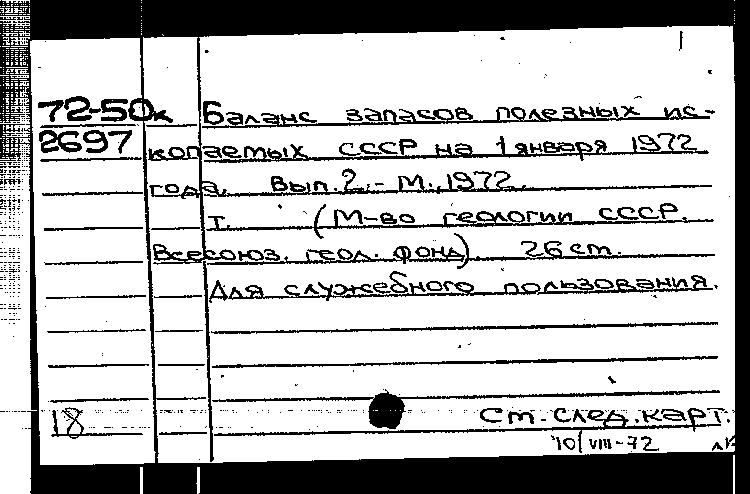 72-50к Баланс запасов полезных ис-
2697 копаемых СССР на 1 января 1972
года. Вып. 2.- М., 1972.
Т. (М-во геологии СССР.
Всесоюз. геол. фонд). 26 см.
Для служебного пользования.
18 См. след. карт.
10/VIII-72